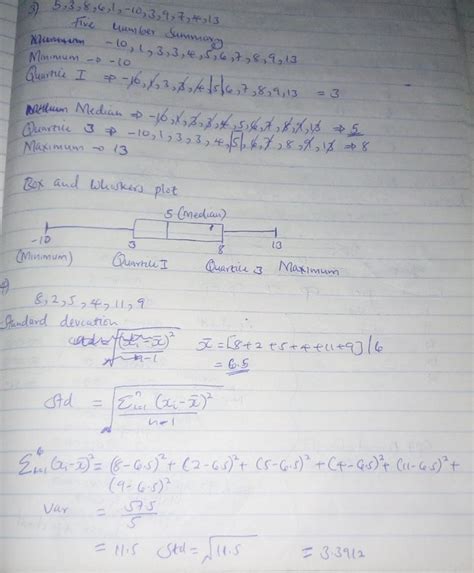 3) 5, 3, 8, 6, 1, -10, 3, 9, 7, 4, 13
Five number summary
-10, 1, 3, 3, 4, 5, 6, 7, 8, 9, 13
Minimum → -10
Quartile I ⇒ -10, 1, 3, 3, 4 |5| 6, 7, 8, 9, 13 = 3
Median ⇒ -10, 1, 3, 3, 4, 5, 6, 7, 8, 9, 13 ⇒ 5
Quartile 3 ⇒ -10, 1, 3, 3, 4, |5|, 6, 7, 8, 9, 13 ⇒ 8
Maximum → 13
Box and Whiskers plot
5 (Median)
-10 3 8 13
(Minimum) Quartile I Quartile 3 Maximum
8, 2, 5, 4, 11, 9
Standard deviation
x̄ = [8+2+5+4+11+9] / 6
= 6.5
Std = √(Σⁿᵢ₌₁ (xᵢ - x̄)² / n-1)
Σ⁶ᵢ₌₁ (xᵢ - x̄)² = (8-6.5)² + (2-6.5)² + (5-6.5)² + (4-6.5)² + (11-6.5)² +
(9-6.5)²
Var = 57.5 / 5
= 11.5 Std = √11.5 = 3.3912